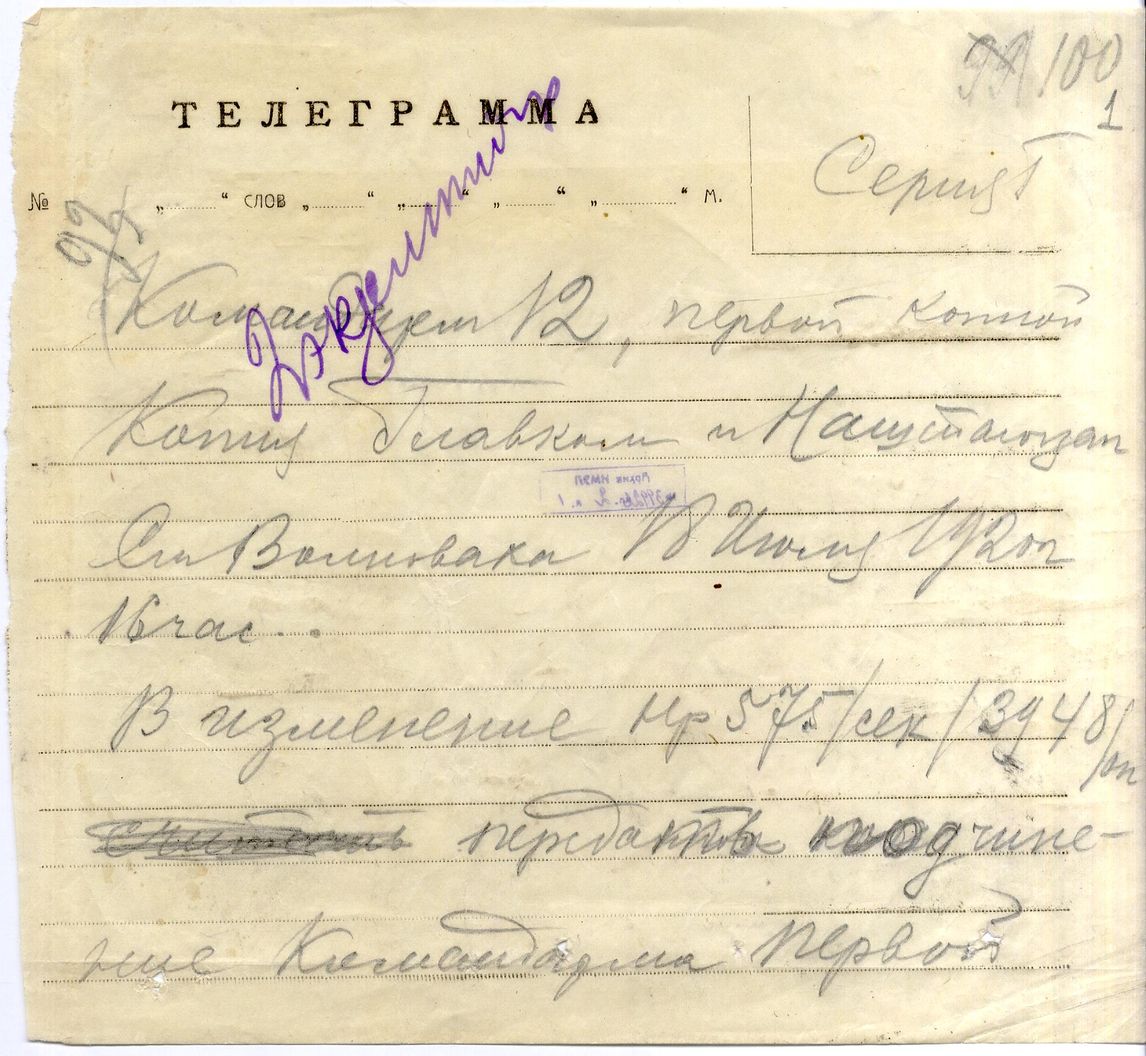 99/100
1
ТЕЛЕГРАММА
Серия Г
№ „ “ слов „ “ „ “ „ “ „ “ м.
Командарм 12, первой конной
Копия Главком и Наштаюзап
Ст Волноваха 18 Июля 1920г
16 час..
В изменение нр 575/сек/3948/оп
передать в подчине-
ние Командарма первой